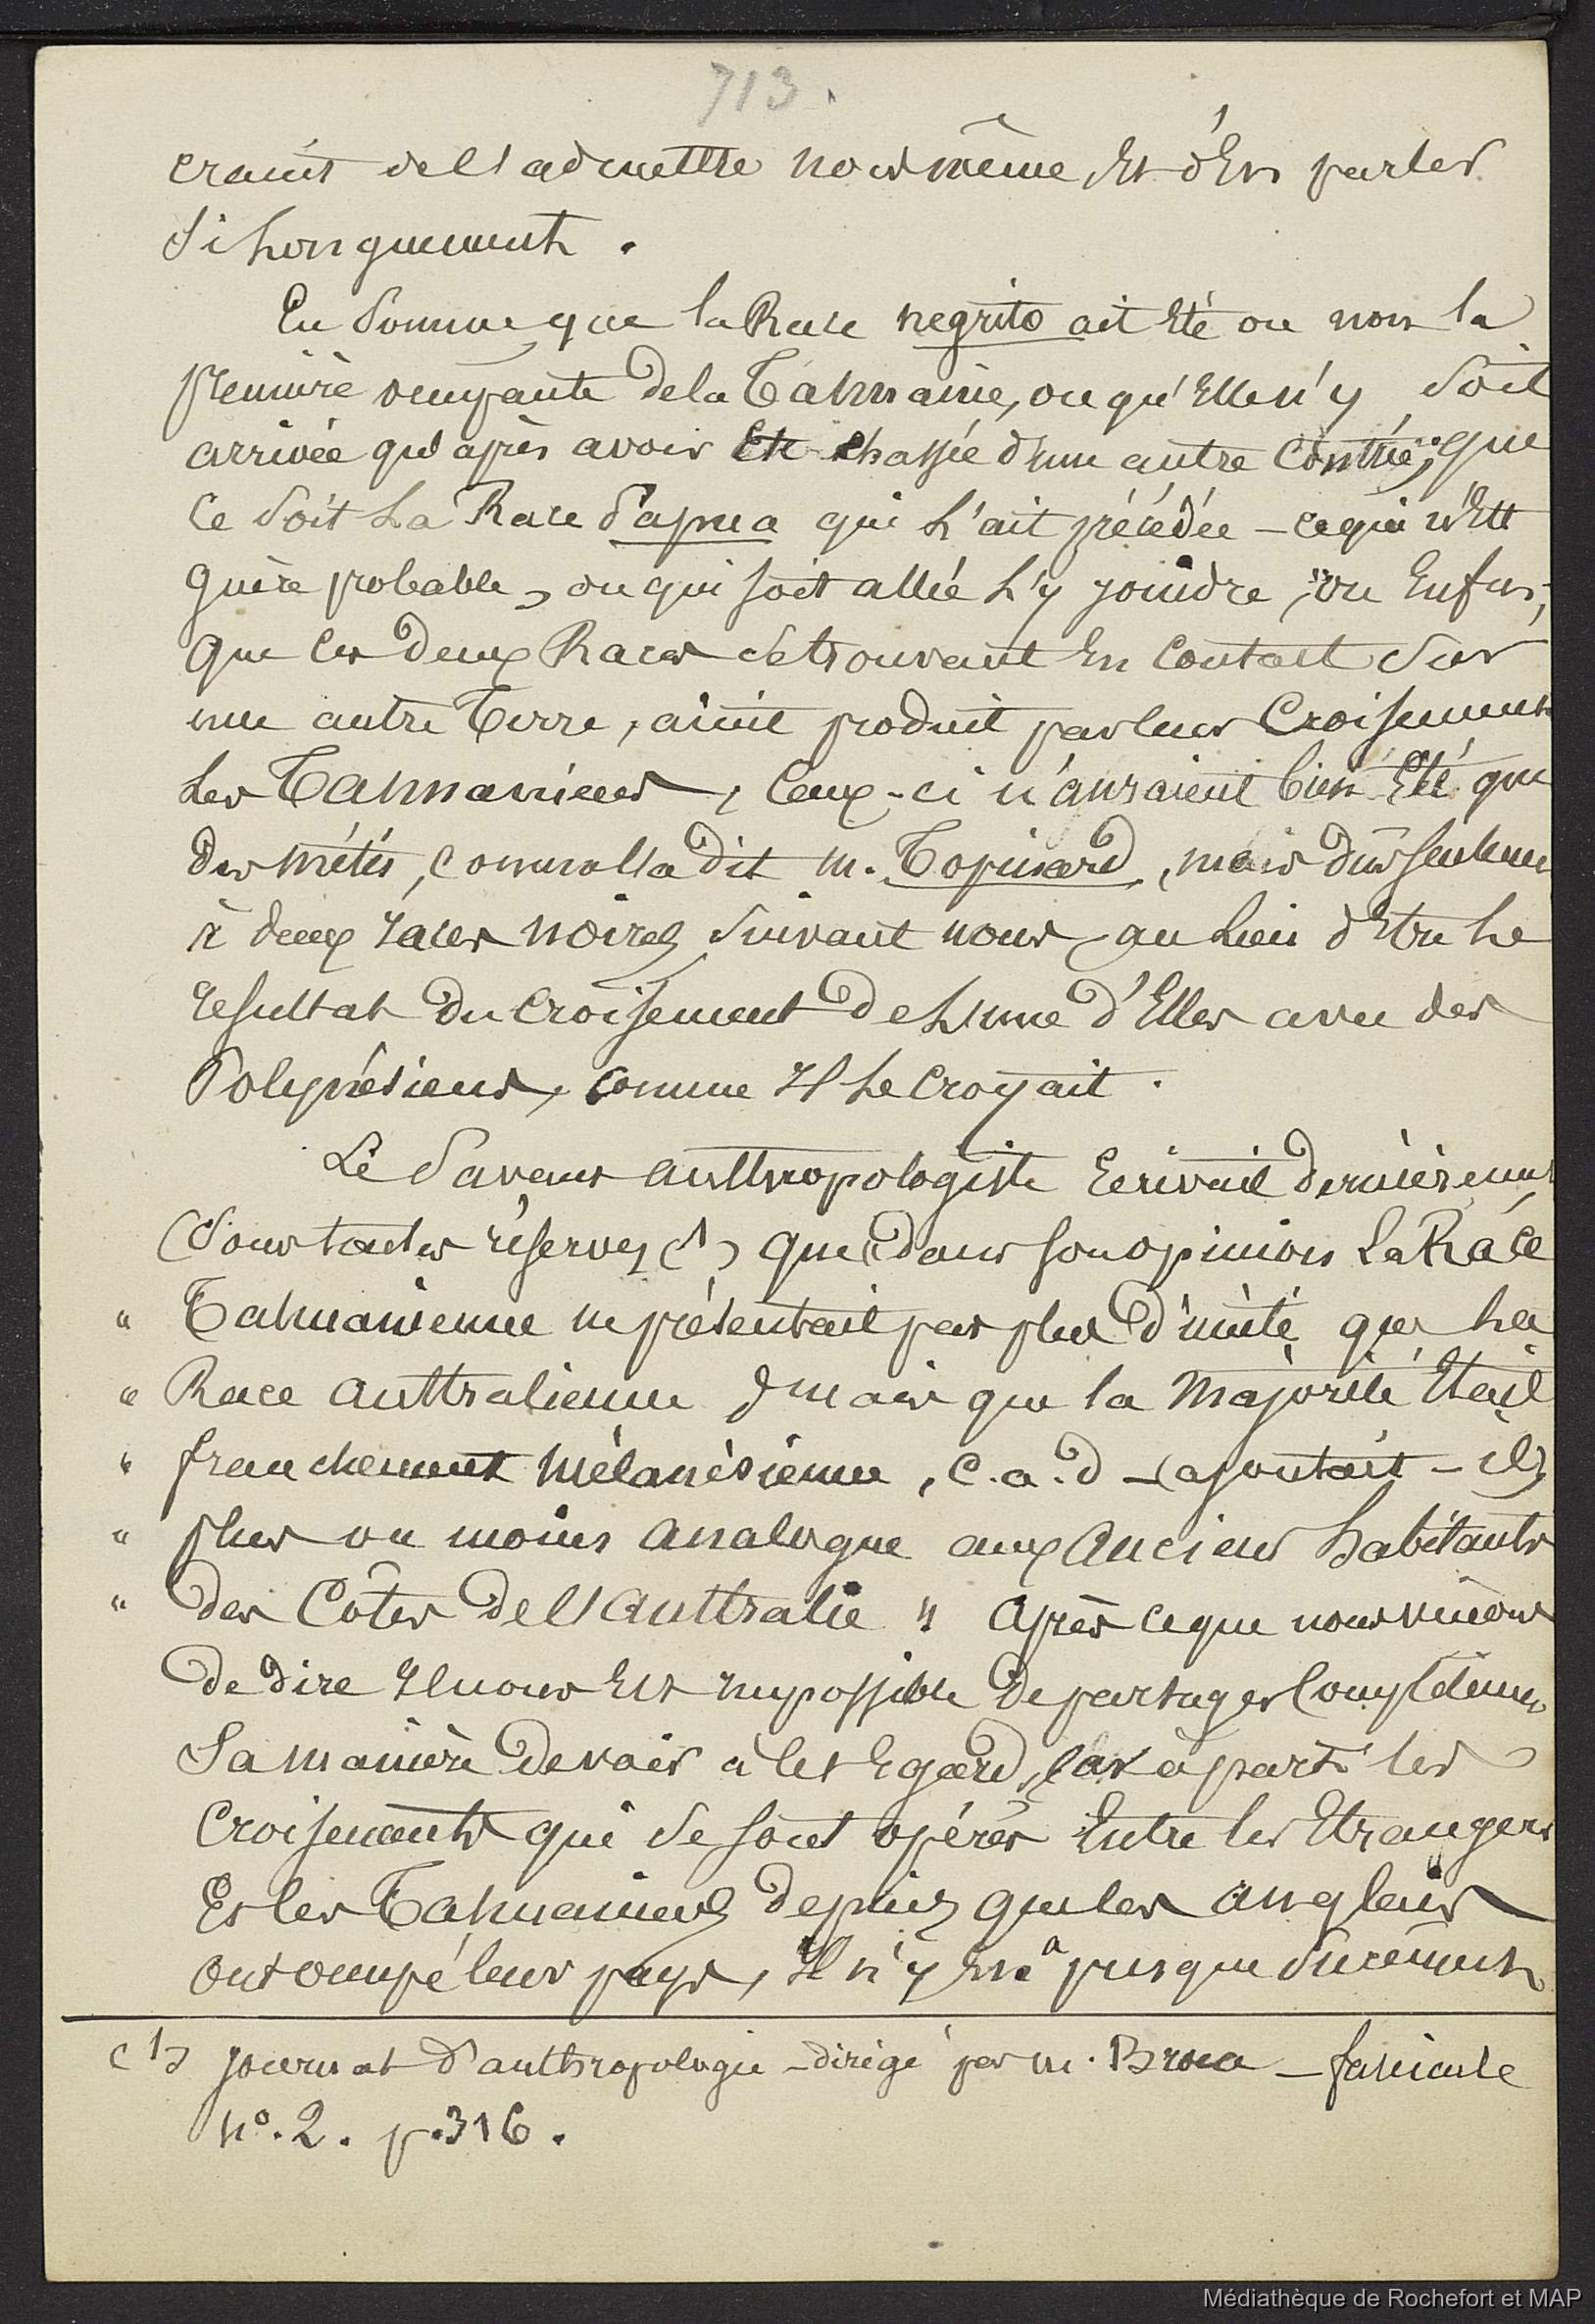 713.
craint de l'admettre nous même et d'En parler
si longuement.
En somme que la Race negrito ait été ou non la
première occupante de la Tasmanie, ou qu'Elle n'y soit
arrivée qu'après avoir Eté chassée d'une autre Contrée; que
Ce soit La Race Papua qui L'ait précédée - ce qui n'Est
guère probable, ou qui soit allée L'y joindre, ou Enfin,
que les deux Races se trouvant En Contact sur
une autre Terre, aient produit par leur Croisement
Les Tasmaniens, Ceux-ci n'auraient bien Eté que
des métis, comme l'a dit M. Topinard, mais dûs seulement
à deux races noires suivant nous, au Lieu d'Etre Le
resultat du croisement de L'une d'Elles avec des
Polynésiens, comme Il Le croyait.
Le Savant anthropologiste Ecrivait dernièrement
(sous toutes réserves) (1) que "dans son opinion La Race
" Tasmanienne ne présentait pas plus d'unité que La
" Race australienne, mais que la majorité Etait
" franchement mélanésienne, c.a.d - (ajoutait-il)
" plus ou moins analogue aux anciens habitants
" des Côtes de l'australie " Après ce que nous venons
de dire Il nous Est impossible de partager Complètement
Sa manière de voir à cet Egard, car à part les
Croisements qui se sont opérés Entre les Etrangers
Et les Tasmaniens depuis que les anglais
ont occupé leur pays, Il n'y En a presque sûrement
(1) Journal d'anthropologie - dirigé par M. Broca - fascicule
n°. 2. p. 316.
Médiathèque de Rochefort et MAP